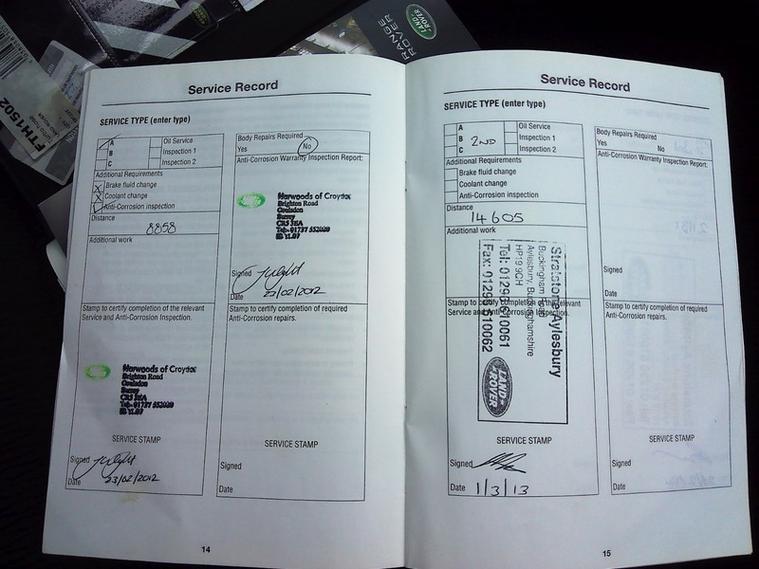 LAND ROVER
RANGE ROVER
FTH1502
Service Record
SERVICE TYPE (enter type)
A
B
C
Oil Service
Inspection 1
Inspection 2
Additional Requirements
X Brake fluid change
X Coolant change
Anti-Corrosion inspection
Distance
8858
Additional work
Stamp to certify completion of the relevant
Service and Anti-Corrosion Inspection.
Harwoods of Croydon
Brighton Road
Coulsdon
Surrey
CR5 3EA
Tel:- 01737 552020
SERVICE STAMP
Signed
Date 23/02/2012
Body Repairs Required
Yes No
Anti-Corrosion Warranty Inspection Report:
Harwoods of Croydon
Brighton Road
Coulsdon
Surrey
CR5 3EA
Tel:- 01737 552020
Signed
Date 23/02/2012
Stamp to certify completion of required
Anti-Corrosion repairs.
SERVICE STAMP
Signed
Date
14
Service Record
SERVICE TYPE (enter type)
A
B 2ND
C
Oil Service
Inspection 1
Inspection 2
Additional Requirements
Brake fluid change
Coolant change
Anti-Corrosion inspection
Distance
14605
Additional work
Stamp to certify completion of the relevant
Service and Anti-Corrosion Inspection.
Stratstone Aylesbury
Buckingham Road
Aylesbury, Buckinghamshire
HP19 9QH
Tel: 01296 510061
Fax: 01296 510062
LAND-
ROVER
SERVICE STAMP
Signed
Date 1/3/13
Body Repairs Required
Yes No
Anti-Corrosion Warranty Inspection Report:
Signed
Date
Stamp to certify completion of required
Anti-Corrosion repairs.
SERVICE STAMP
Signed
Date
15